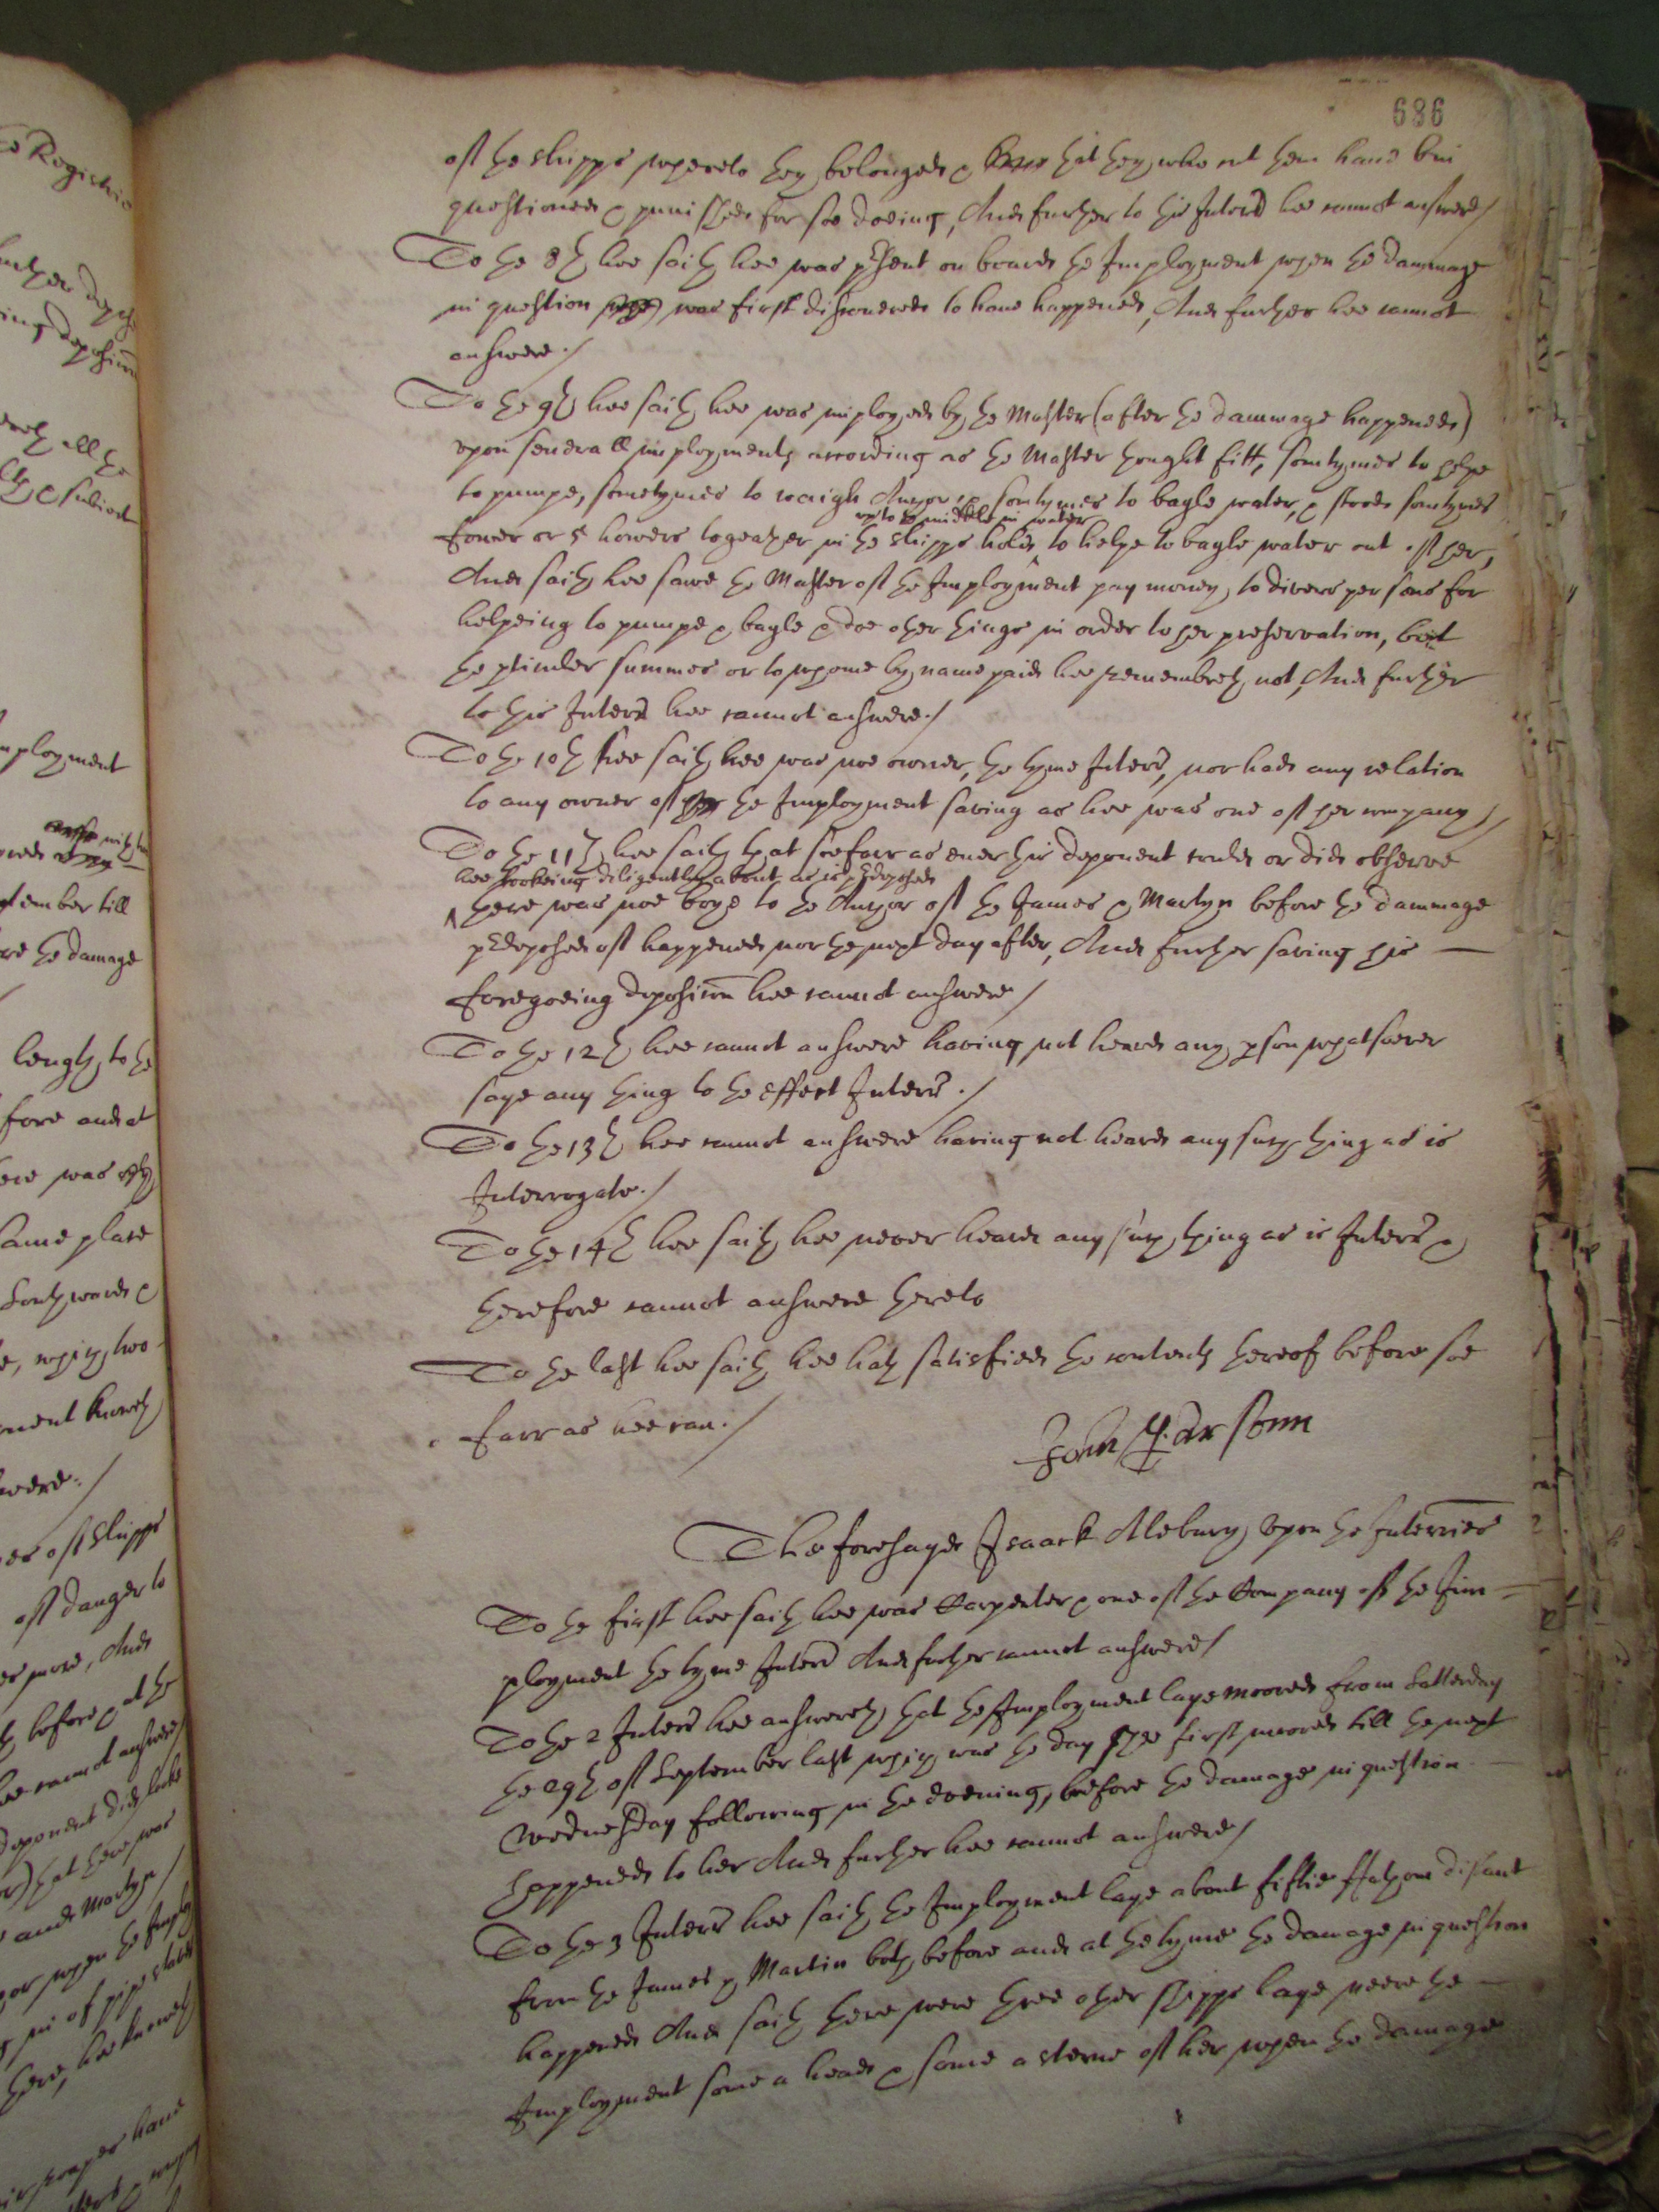 686
of the shipps whereto they belonged & that they who cut them have bin
questioned & punished for soe doeing, And further to this Interr hee cannot answere/
To the 8th hee saith hee was present on board the Imployment when the dammage
in question was first discovered to have happened, And further hee cannot
answere./
To the 9th hee saith hee was imployed by the Master (after the dammage happened)
upon severall imployments according as the Master thought fitt, somtymes to helpe
to pumpe, sometymes to waigh Anchor, & somtymes to bayle water, & stood somtymes
up to the middle in water
fower or 5 howers togeather in the shipps hold to helpe to bayle water out of her,
And saith hee sawe the Master of the Imployment pay money to divers persons for
helpeing to pumpe & bayle & doe other things in order to her preservation, but
the perticuler summes or to whome by name paid hee remembreth not, And further
to this Interr hee cannot answere./
To the 10th hee saith hee was noe owner, the tyme Interr, nor had any relation
to any owner of the Imployment saving as hee was one of her company/
To the 11th hee saith that soe farr as ever this deponent could or did observe
hee lookeing diligently about as is predeposed
there was noe boye to the Anchor of the James & Martyn before the dammage
predeposed of happened nor the next day after, And further saving his
foregoeing deposicon hee cannot answere/
To the 12th hee cannot answere having not heard any person whatsoever
saye any thing to the effect Interr./
To the 13th hee cannot answere having not heard any such thing as is
Interrogate./
To the 14th hee saith hee never heard any such thing as is Interr &
therefore cannot answere thereto
To the last hee saith hee hath satisfied the contents thereof before soe
farr as hee can./
John Pearsonn
The foresayd Isaack Alebury upon the Interries
To the first hee saith hee was Carpenter & one of the Company of the Im-
ployment the tyme Interr And further cannot answere/
To the 2 Interr hee answereth that the Imployment laye moored from Satterday
the 29th of September last which was the day shee first moored till the next
Wednesday following in the evening, before the damage in question
happened to her And further hee cannot answere/
To the 3 Interr hee saith the Imployment laye about fiftie ffathom distant
from the James & Martin both before and at the tyme the damage in question
happened And saith there were three other shipps laye neere the
Imployment some a head & some a sterne of her when the damage